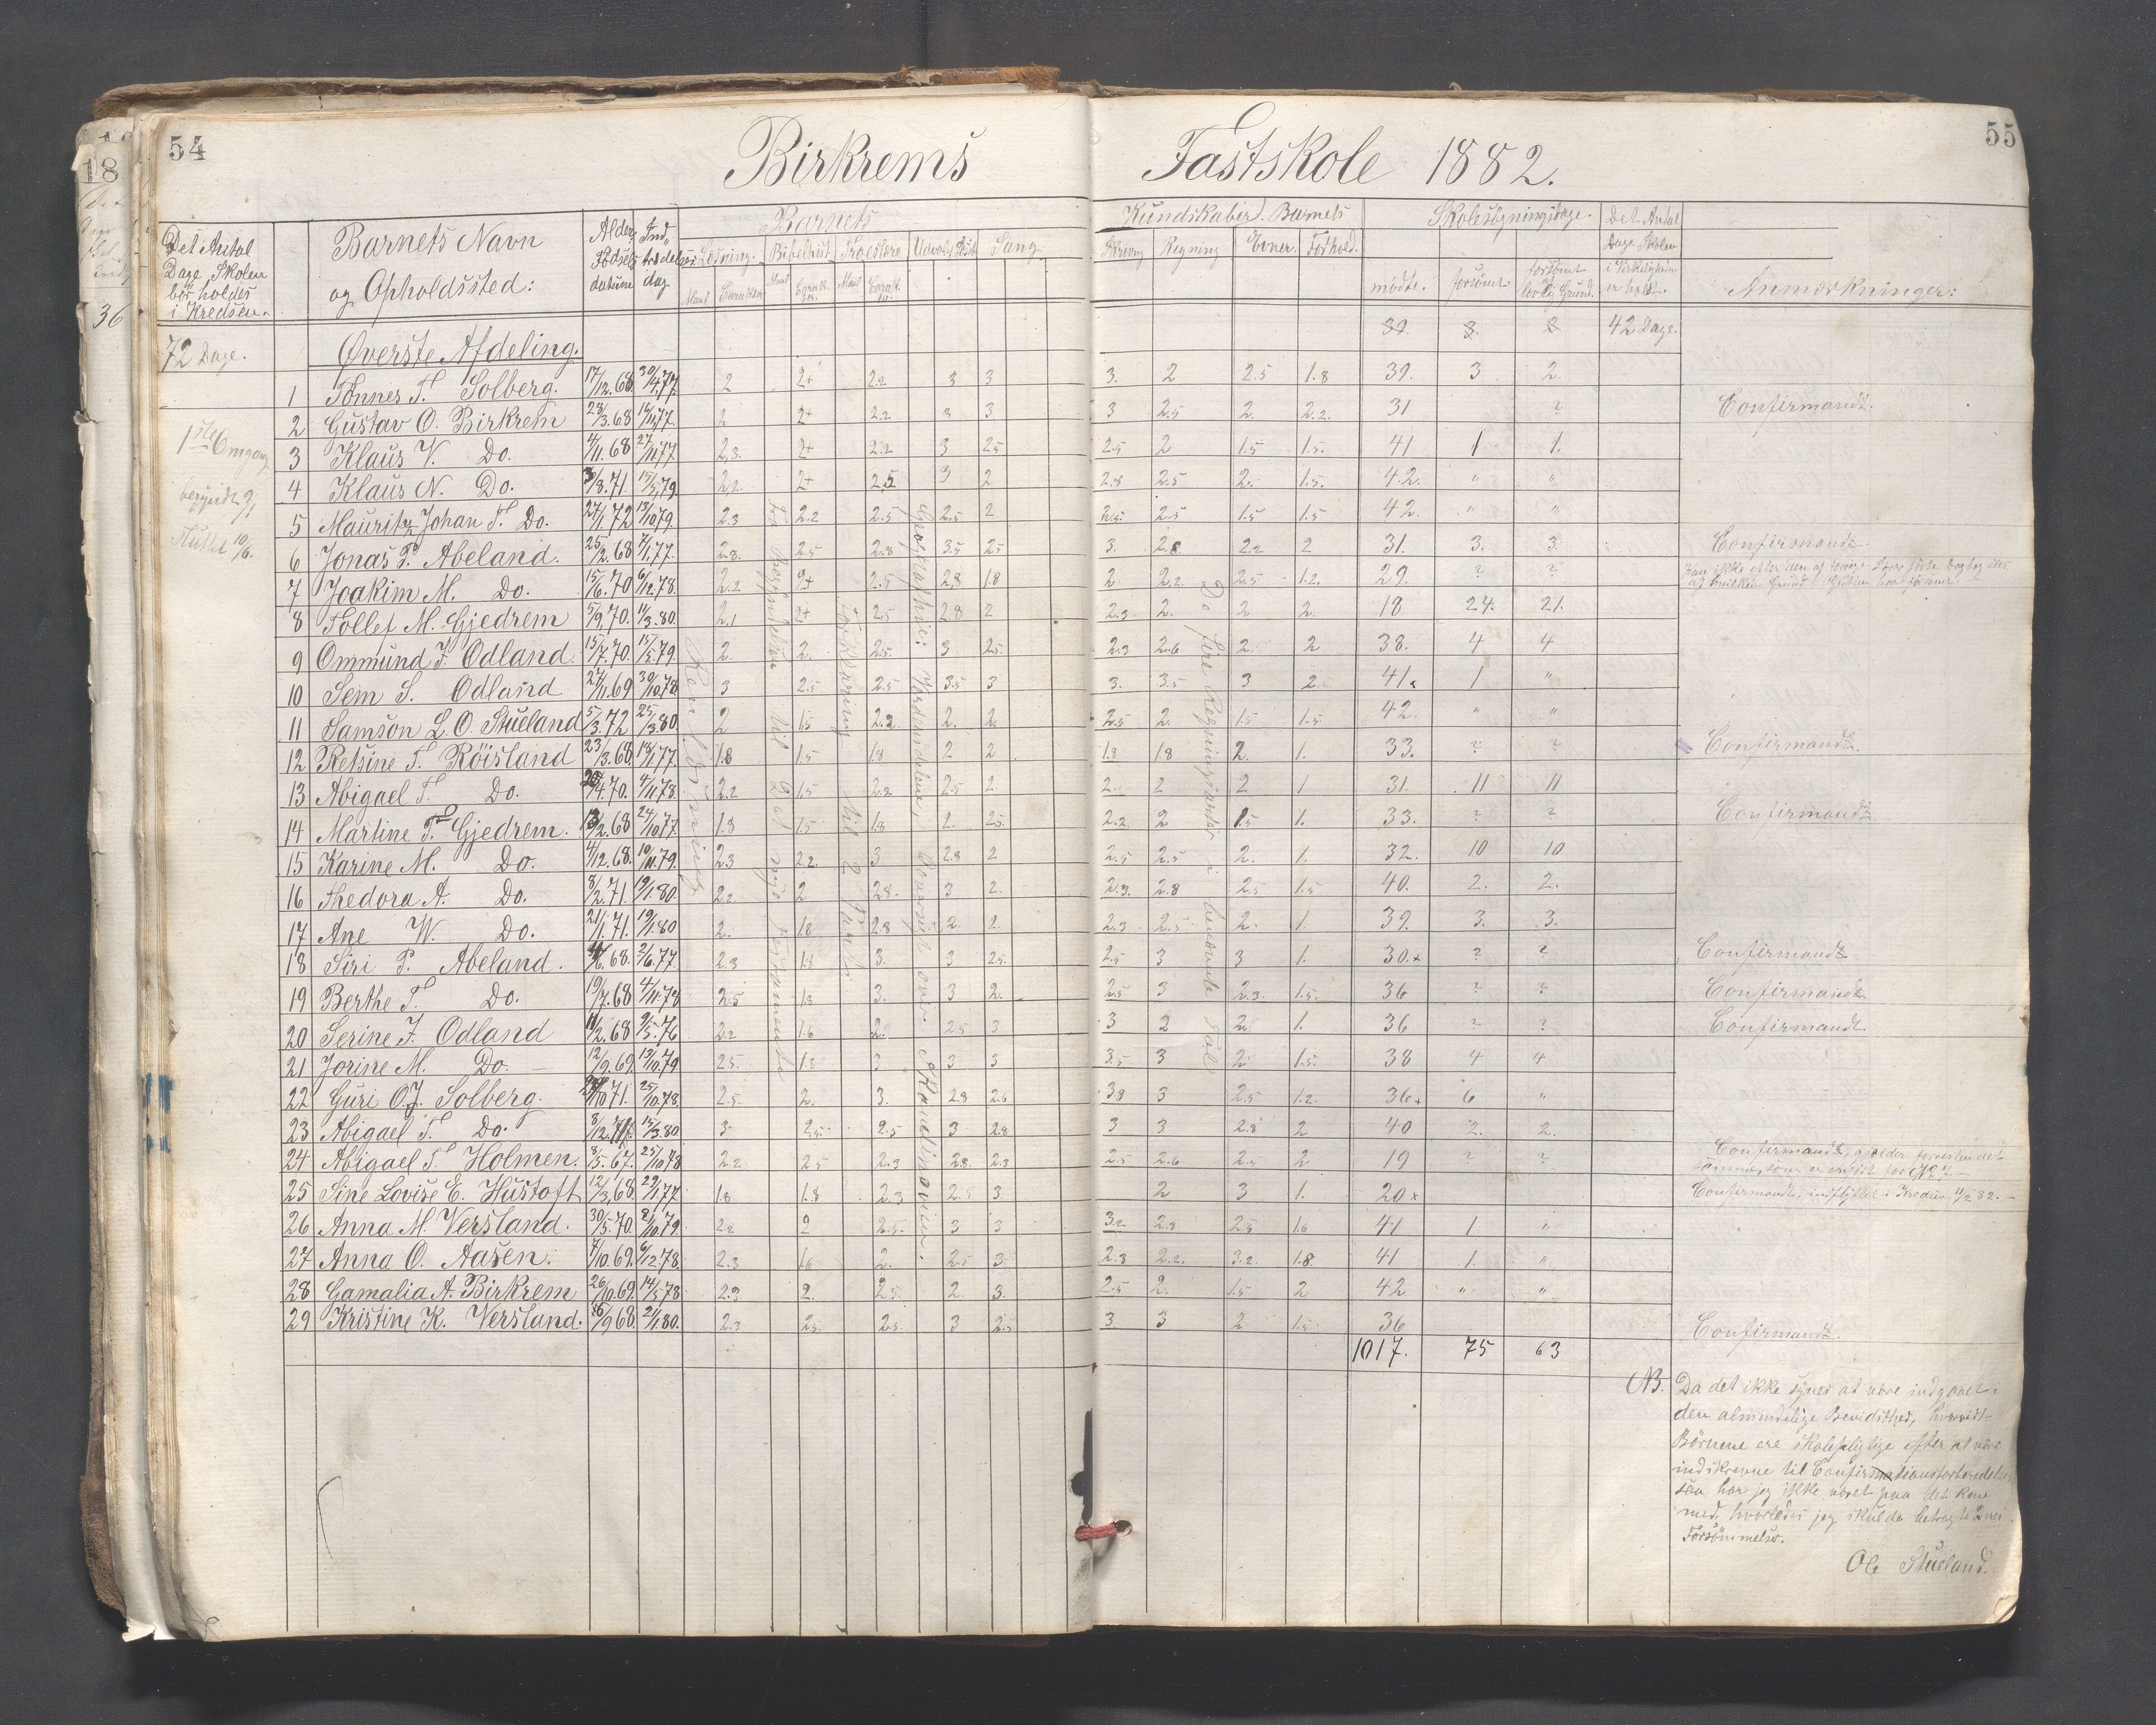 54
55
18
36
Birkrems Fastskole 1882.
Det Antal Dage Skolen bör holdes i Kredsen.
Barnets Navn og Opholdssted:
Alder, Födselsdatum
Indtrædelsesdag
Barnets Kundskaber. Barnets
Læsning. Maal Carakter
Bibelhist. Maal Carakter
Troeslære Maal Carakt.
Udvalg Læst.
Sang
Skrivng
Regning
Evner.
Forhold.
Skolesögningsdage.
mödte. forsömt. forsömt lovlig Grund.
Det Antal Dage Skolen i Virkeligheden er holdt.
Anmærkninger:
72 Dage.
Øverste Afdeling.
42 Dage.
1ste Omgang
begyndt 9/1
sluttet 10/6.
1 Tönnes T. Solberg. 17/12.68. 30/4.77. 2 2+ 2.2 3 3 3. 2 2.5 1.8 39. 3 2.
2 Gustav O. Birkrem 28/3.68 16/11.77. 2 2+ 2.2 3 3 3 2.5 2. 2.2. 31 ? Confirmandt.
3 Klaus V. Do. 4/11.68 27/11.77. 2.3. 2+ 2.2 3 2.5 2.5 2 1.5 1.5. 41 1 1.
4 Klaus N. Do. 3/8.71. 15/5.79. 2.2. 2+ 2.5 3 2 2.8 2.5 2. 1.5. 42. " "
5 Mauritz Johan T. Do. 27/1.72 13/10.79. 2.3 2.2 2.5 2.5 2 2.5 1.5 1.5 42. " "
6 Jonas P. Abeland. 25/2.68 7/1.77. 2.8. 2.5 2.8 3.5 2.5 3. 2.8 2.2 2 31. 3. 3. Confirmandt.
7 Joakim M. Do. 15/6.70 6/12.78. 2.2 2+ 2.5 2.8 1.8 2 2.2. 2.5 1.2. 29. ? ?
8 Tollef M. Gjedrem 5/9.70. 11/3.80. 2.1 2+ 2.5 2.8 2 2.3 2. 2 2. 18 24. 21.
9 Ommund J. Odland. 15/7.70. 15/5.79. 2. 2. 2.5. 3 2.5. 2.3 2.6 2. 2 38. 4 4
10 Sem S. Odland 27/11.69 30/10.78. 3 2.5 2.5 3.5 3 3. 3.5 3 2. 41. 1 "
11 Samson L. O. Stueland 5/3.72 25/3.80. 2 1.5 2.2 2. 2. 2.5 2. 1.5 1.5. 42. " "
12 Retsine T. Röisland 23/3.68 18/1.77. 1.8 1.5 1.8 2 2 1.8 1.8 2. 1. 33. ? ? Confirmandt.
13 Abigael T. Do. 4.70. 4/11.78. 2.2 1.5 2.2 2.5 2 2. 2 2 1 31. 11 11
14 Martine T. Gjedrem. 13/2.68 24/10.77. 1.8 1.5 1.8 2. 2.5. 2.2. 2 1.5 1. 33. ? ? Confirmandt.
15 Karine M. Do. 4/12.68. 10/11.79. 2.3 2.2. 3 2.8 2 2.5 2.5 2. 1. 32. 10 10
16 Thedora A. Do. 8/2.71. 19/1.80. 2.2 2 2.8 3 2. 2.3. 2.8 2.5 1.5 40. 2. 2.
17 Ane W. Do. 21/1.71. 19/1.80 2. 1.8 2.8 2. 2. 2.3 2.5 2. 1. 39. 3. 3.
18 Siri P. Abeland. 6.68. 2/6.77. 2.3 1.8 3. 3 2.5. 2.5 3 3 1. 30.+ ? ? Confirmandt
19 Berthe T. Do. 19/7.68 4/11.78 2.5 1.8 3. 3 2. 2.5 3 2.3. 1.5. 36 ? ? Confirmandt
20 Serine J. Odland 11/2.68 9/5.76 2.2 1.6 2. 2.5 3 3 2 2 1. 36 ? ? Confirmandt
21 Jorine M. Do. 12/9.69. 13/10.79 2.5. 1.8 3 3 3 3.5 3 2 1.5. 38 4 4
22 Guri O. J. Solberg. 10.71. 25/10.78. 2.5. 2. 3. 2.8 2.6 3.8 3 2.5 1.2. 36+ 6 "
23 Abigael T. Do. 8/12. 15/3.80. 3 2.5. 2.5 3 2.8 3 3 2.8 2 40 2. 2.
24 Abigael T. Holmen. 8/5.67. 25/10.78 2.2 2.5 2.3 2.8. 2.3 2.5 2.6 2.5 2 19 ? ? Confirmandt,
25 Sine Lovise E. Hustoft 12/3.68. 29/1.77 1.8 1.8 2.3 2.5 3 2 3 1. 20+ Confirmandt, indflyttet i Kredsen 11/2 82.
26 Anna M. Versland. 30/5.70. 8/10.79. 2.2 2 2.5. 3 3 3.2 2.8 2.5 1.6 41 1 "
27 Anna O. Aasen. 7/10.69. 6/12.78. 2.3 1.6 2. 2.5 3. 2.3 2.2. 3.2. 1.8. 41 1. "
28 Gamalia A. Birkrem 26/10.69. 14/5.78 2.3 2. 2.5 2. 3. 2.5 2. 1.5 2 42 " "
29 Kristine K. Versland. 16/9.68. 21/1.80. 2.3 2.5. 2.5. 3 2.5 3. 3 2 1.5 36 Confirmandt.
1017. 75 63
Renlæsning
Fra begyndelsen til det nye Testamente
Forklaring til 2 Part
Geografhie: Jordens dele, Oversigt over Skandinavien.
De fire Regningsarter i benævnte Tal
NB. Da det ikke synes at være indgaaet i
den almindelige Bevidsthed, hvorvidt
Börnene ere skolepligtige efter at være
indskrevne til Confirmationsforberedelse
saa har jeg ikke været paa det rene
med, hvorledes jeg skulde betragte Deres
Forsömmelser.
Ole Stueland.